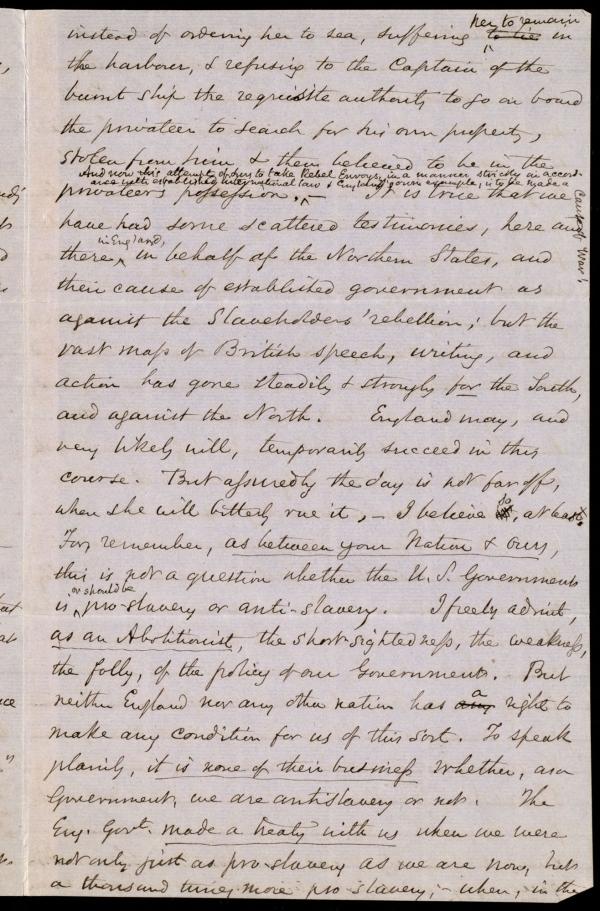 instead of ordering her to sea, suffering to lie her to remain in
the harbour, & refusing to the Captain of the
burnt ship the requisite authority to go on board
the privateer to search for his own property,
stolen from him & then believed to be in the
And now this attempt of ours to take Rebel Envoys, in a manner strictly in accord-
ance with established international law & England's own example, is to be made a
Cause of War!
privateer's possession. – It is true that we
have had some scattered testimonies, here and
there, in England, in behalf of the Northern States, and
their cause of established government as
against the Slaveholders' rebellion; but the
vast mass of British speech, writing, and
action has gone steadily & strongly for the South,
and against the North. England may, and
very likely will, temporarily succeed in this
course. But assuredly the day is not far off,
when she will bitterly rue it, – I believe so, at least.
For, remember, as between your Nation & ours,
this is not a question whether the U. S. Government
is or should be pro-slavery or anti-slavery. I freely admit,
as an Abolitionist, the short-sightedness, the weakness,
the folly, of the policy of our Government. But
neither England nor any other nation has any a right to
make any condition for us of this sort. To speak
plainly, it is none of their business whether, as a
Government, we are antislavery or not. The
Eng. Govt. made a treaty with us when we were
not only just as pro-slavery as we are now, but
a thousand times more pro slavery; – when, in the